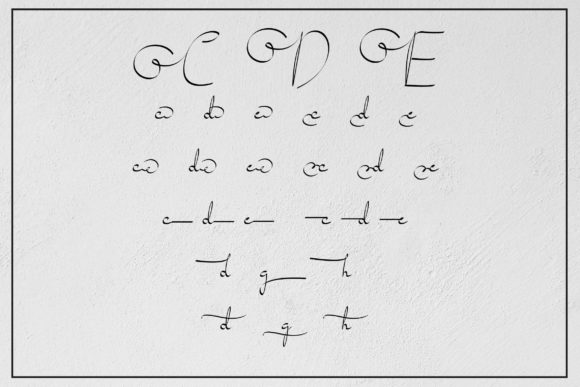 C D E
c d e c d e
c d e c d e
c d e c d e
d g h
d g h